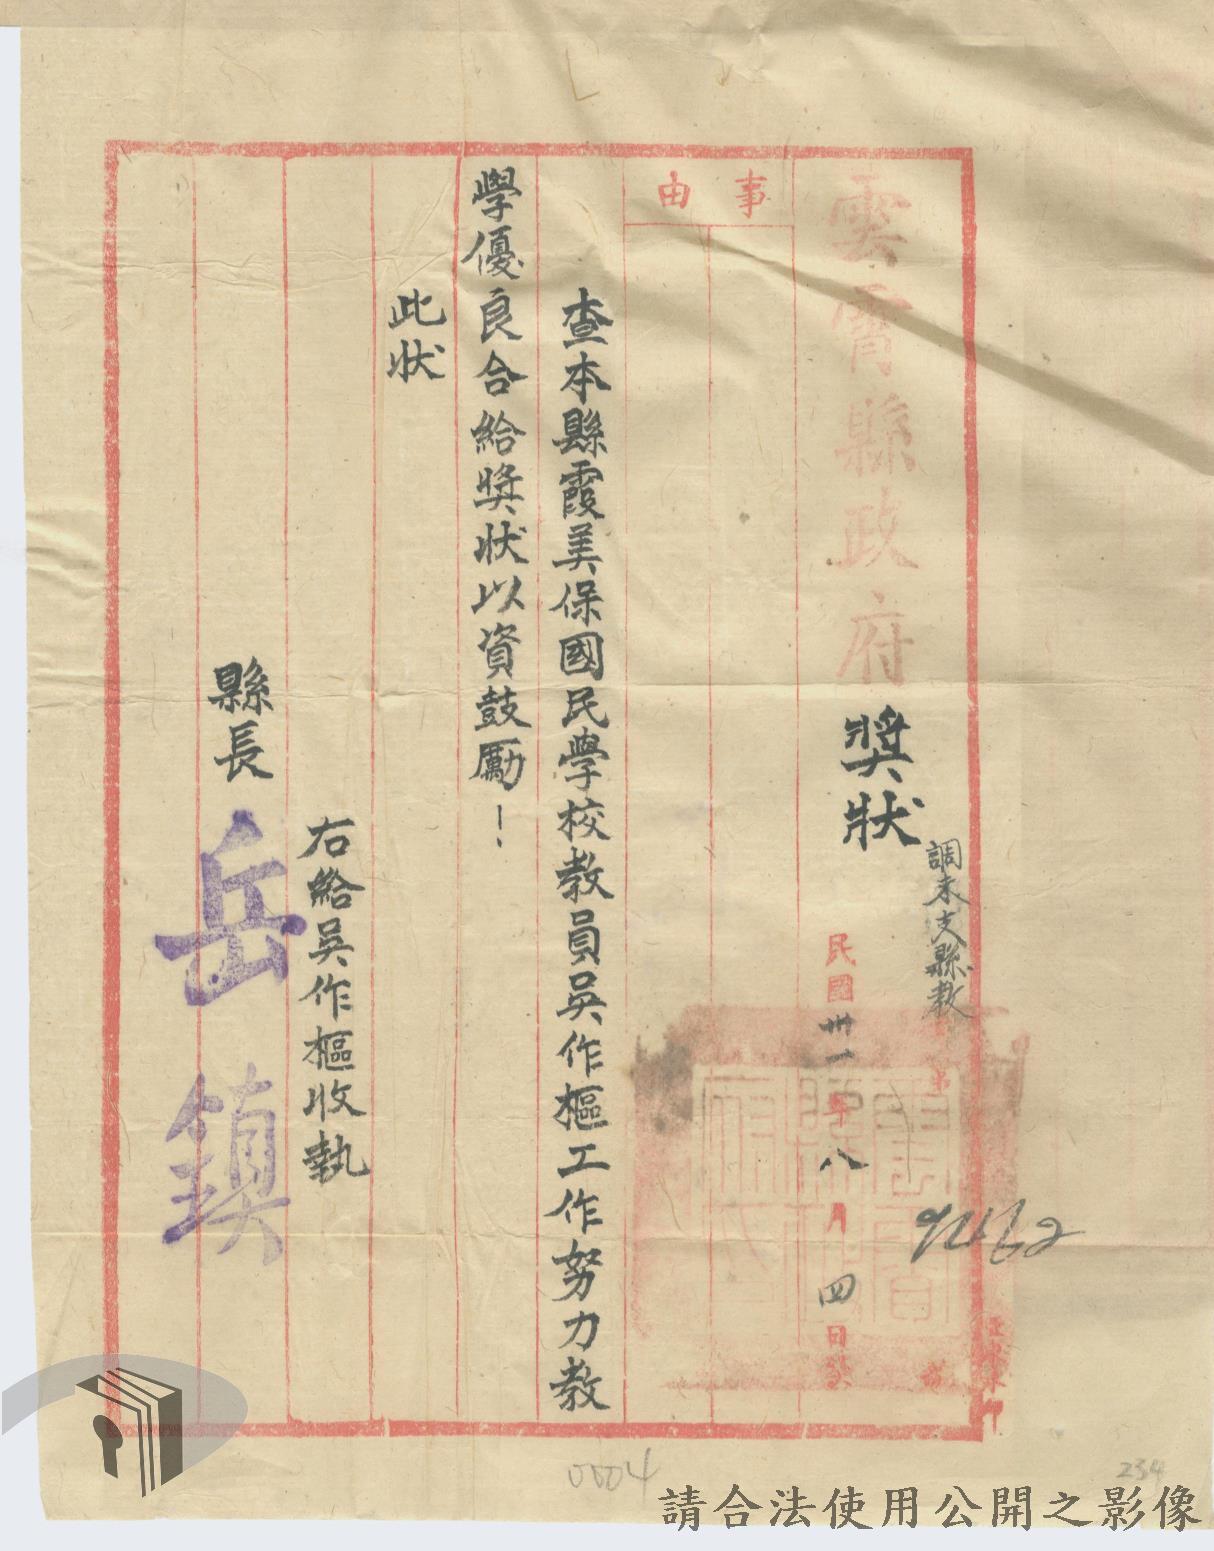 雲霄縣政府獎狀
調未支縣教
民國卅一年八月四日發
92162
事由
查本縣霞美保國民學校教員吳作樞工作努力教
學優良合給獎狀以資鼓勵！
此狀
右給吳作樞收執
縣長 岳鎮
0004
234
請合法使用公開之影像